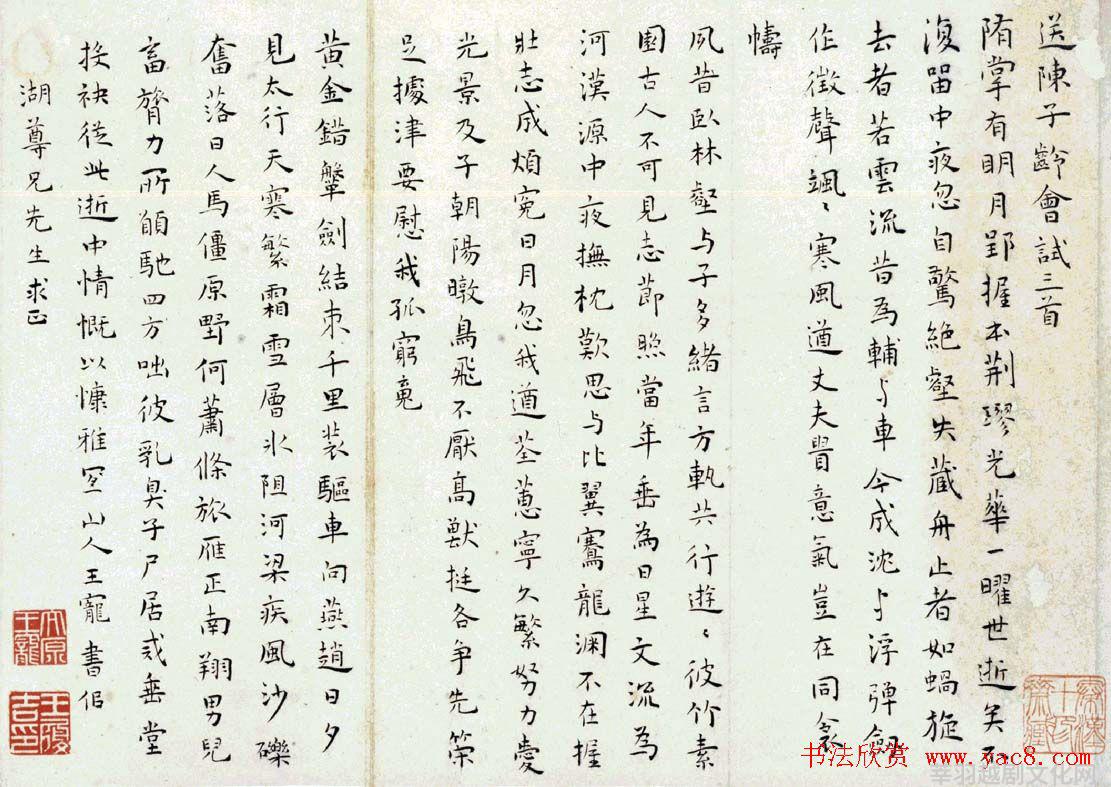 送陳子齡會試三首
隋掌有明月郢握本荆璆光華一曜世逝矣不
復畱中夜忽自驚絶壑失藏舟止者如蝸旋
去者若雲流昔為輔与車今成沈与浮彈劍
作徵聲颯〻寒風遒丈夫貴意氣豈在同衾
幬
夙昔卧林壑与子多緒言方軌共行遊〻彼竹素
園古人不可見志節照當年垂為日星文流為
河漢源中夜撫枕歎思与比翼騫龍渊不在握
壯志成煩寃日月忽我遒荃蕙寧久繁努力愛
光景及子朝陽暾鳥飛不厭高獸挺各争先策
足據津要慰我孤窮
黃金錯鞶劍結束千里装驅車向燕趙日夕
見太行天寒繁霜雪層氷阻河梁疾風沙礫
奮落日人馬僵原野何蕭條旅雁正南翔男兒
畜膂力所願馳四方咄彼乳臭子尸居戒垂堂
投袂從此逝中情慨以慷雅宜山人王寵書似
湖尊兄先生求正
王履吉印
书法欣赏 www.yac8.com
辛羽越剧文化网